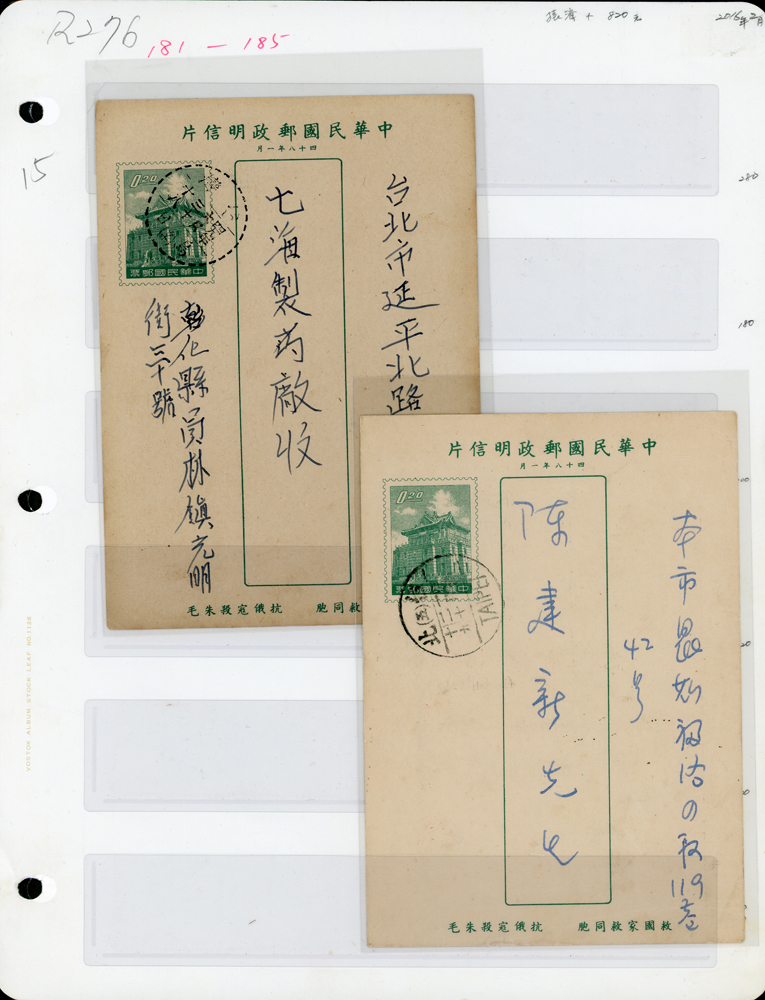 R276
181 — 185
振濤 + 820元
2016年2月
15
280
180
片信明政郵國民華中
月一年八十四
0.20
票郵國民華中
台北市延平北路
七海製药廠收
彰化縣員林鎮光明
街三十號
毛朱殺寇俄抗
胞同救
片信明政郵國民華中
月一年八十四
0.20
票郵國民華中
TAIPEI
本市
42号
119巷
陳建新先生
毛朱殺寇俄抗
胞同救家國救
VORTOR ALBUM STOCK LEAF NO.1128